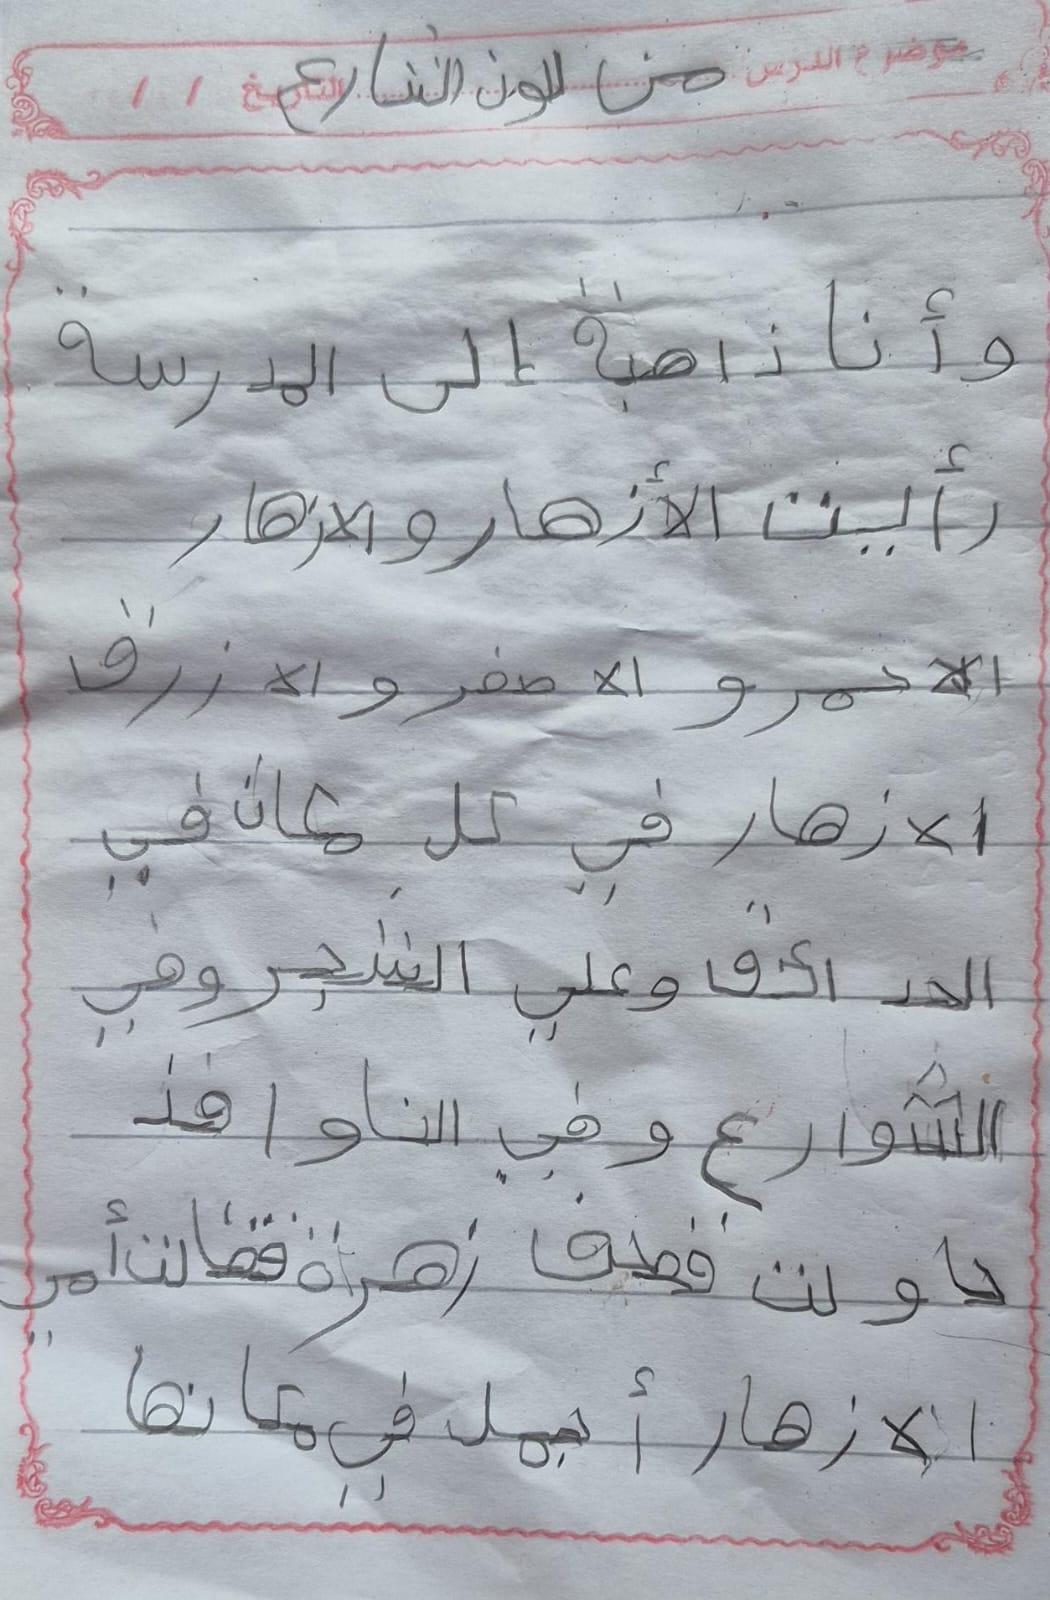 موضوع الدرس من لون الشارع التاريخ / /
وأنا ذاهبة إلى المدرسة
رأيت الأزهار والازهار
الاحمر و الاصفر و الازرق
الازهار في كل مكان في
الحدائق وعلي الشجر وفي
الشوارع وفي الناوافذ
حاولت قطف زهرة فقالت أمي
الازهار أجمل في مكانها